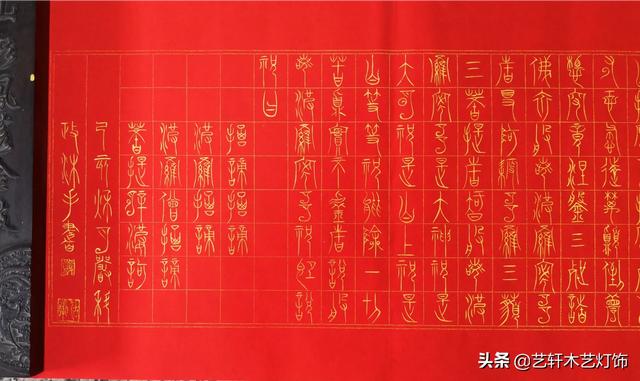 有恐怖遠離顛倒夢
想究竟涅槃三世諸
佛依般若波羅蜜多
故得阿耨多羅三藐
三菩提故知般若波
羅蜜多是大神咒是
大明咒是無上咒是
無等等咒能除一切
苦真實不虛故說般
若波羅蜜多咒即說
咒曰
揭諦揭諦
波羅揭諦
波羅僧揭諦
菩提薩婆訶
己亥秋月
沐手書
头条 @艺轩木艺灯饰